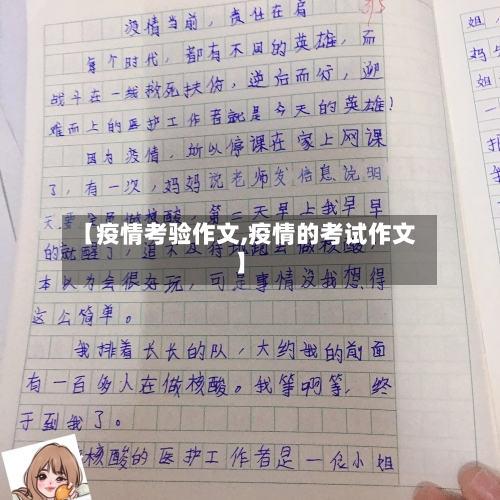 疫情当前，责任在肩
95
每个时代，都有不同的英雄，而
战斗在一线救死扶伤，逆后而行，迎
难而上的医护工作者就是今天的英雄！
因为疫情，所以停课在家上网课
了，有一次，妈妈说老师发信息说明
天要全员做核酸，第二天早上我早早
【疫情考验作文,疫情的考试作文
的就醒了，迫不及待地跑去做核酸，
】
本以为会很好玩，可是事情没我想得
这么简单。
我排着长长的队，大约我的前面
有一百多人在做核酸。我等啊等，终
于到我了。
核酸的医护工作者是一位小姐
姐，
妈